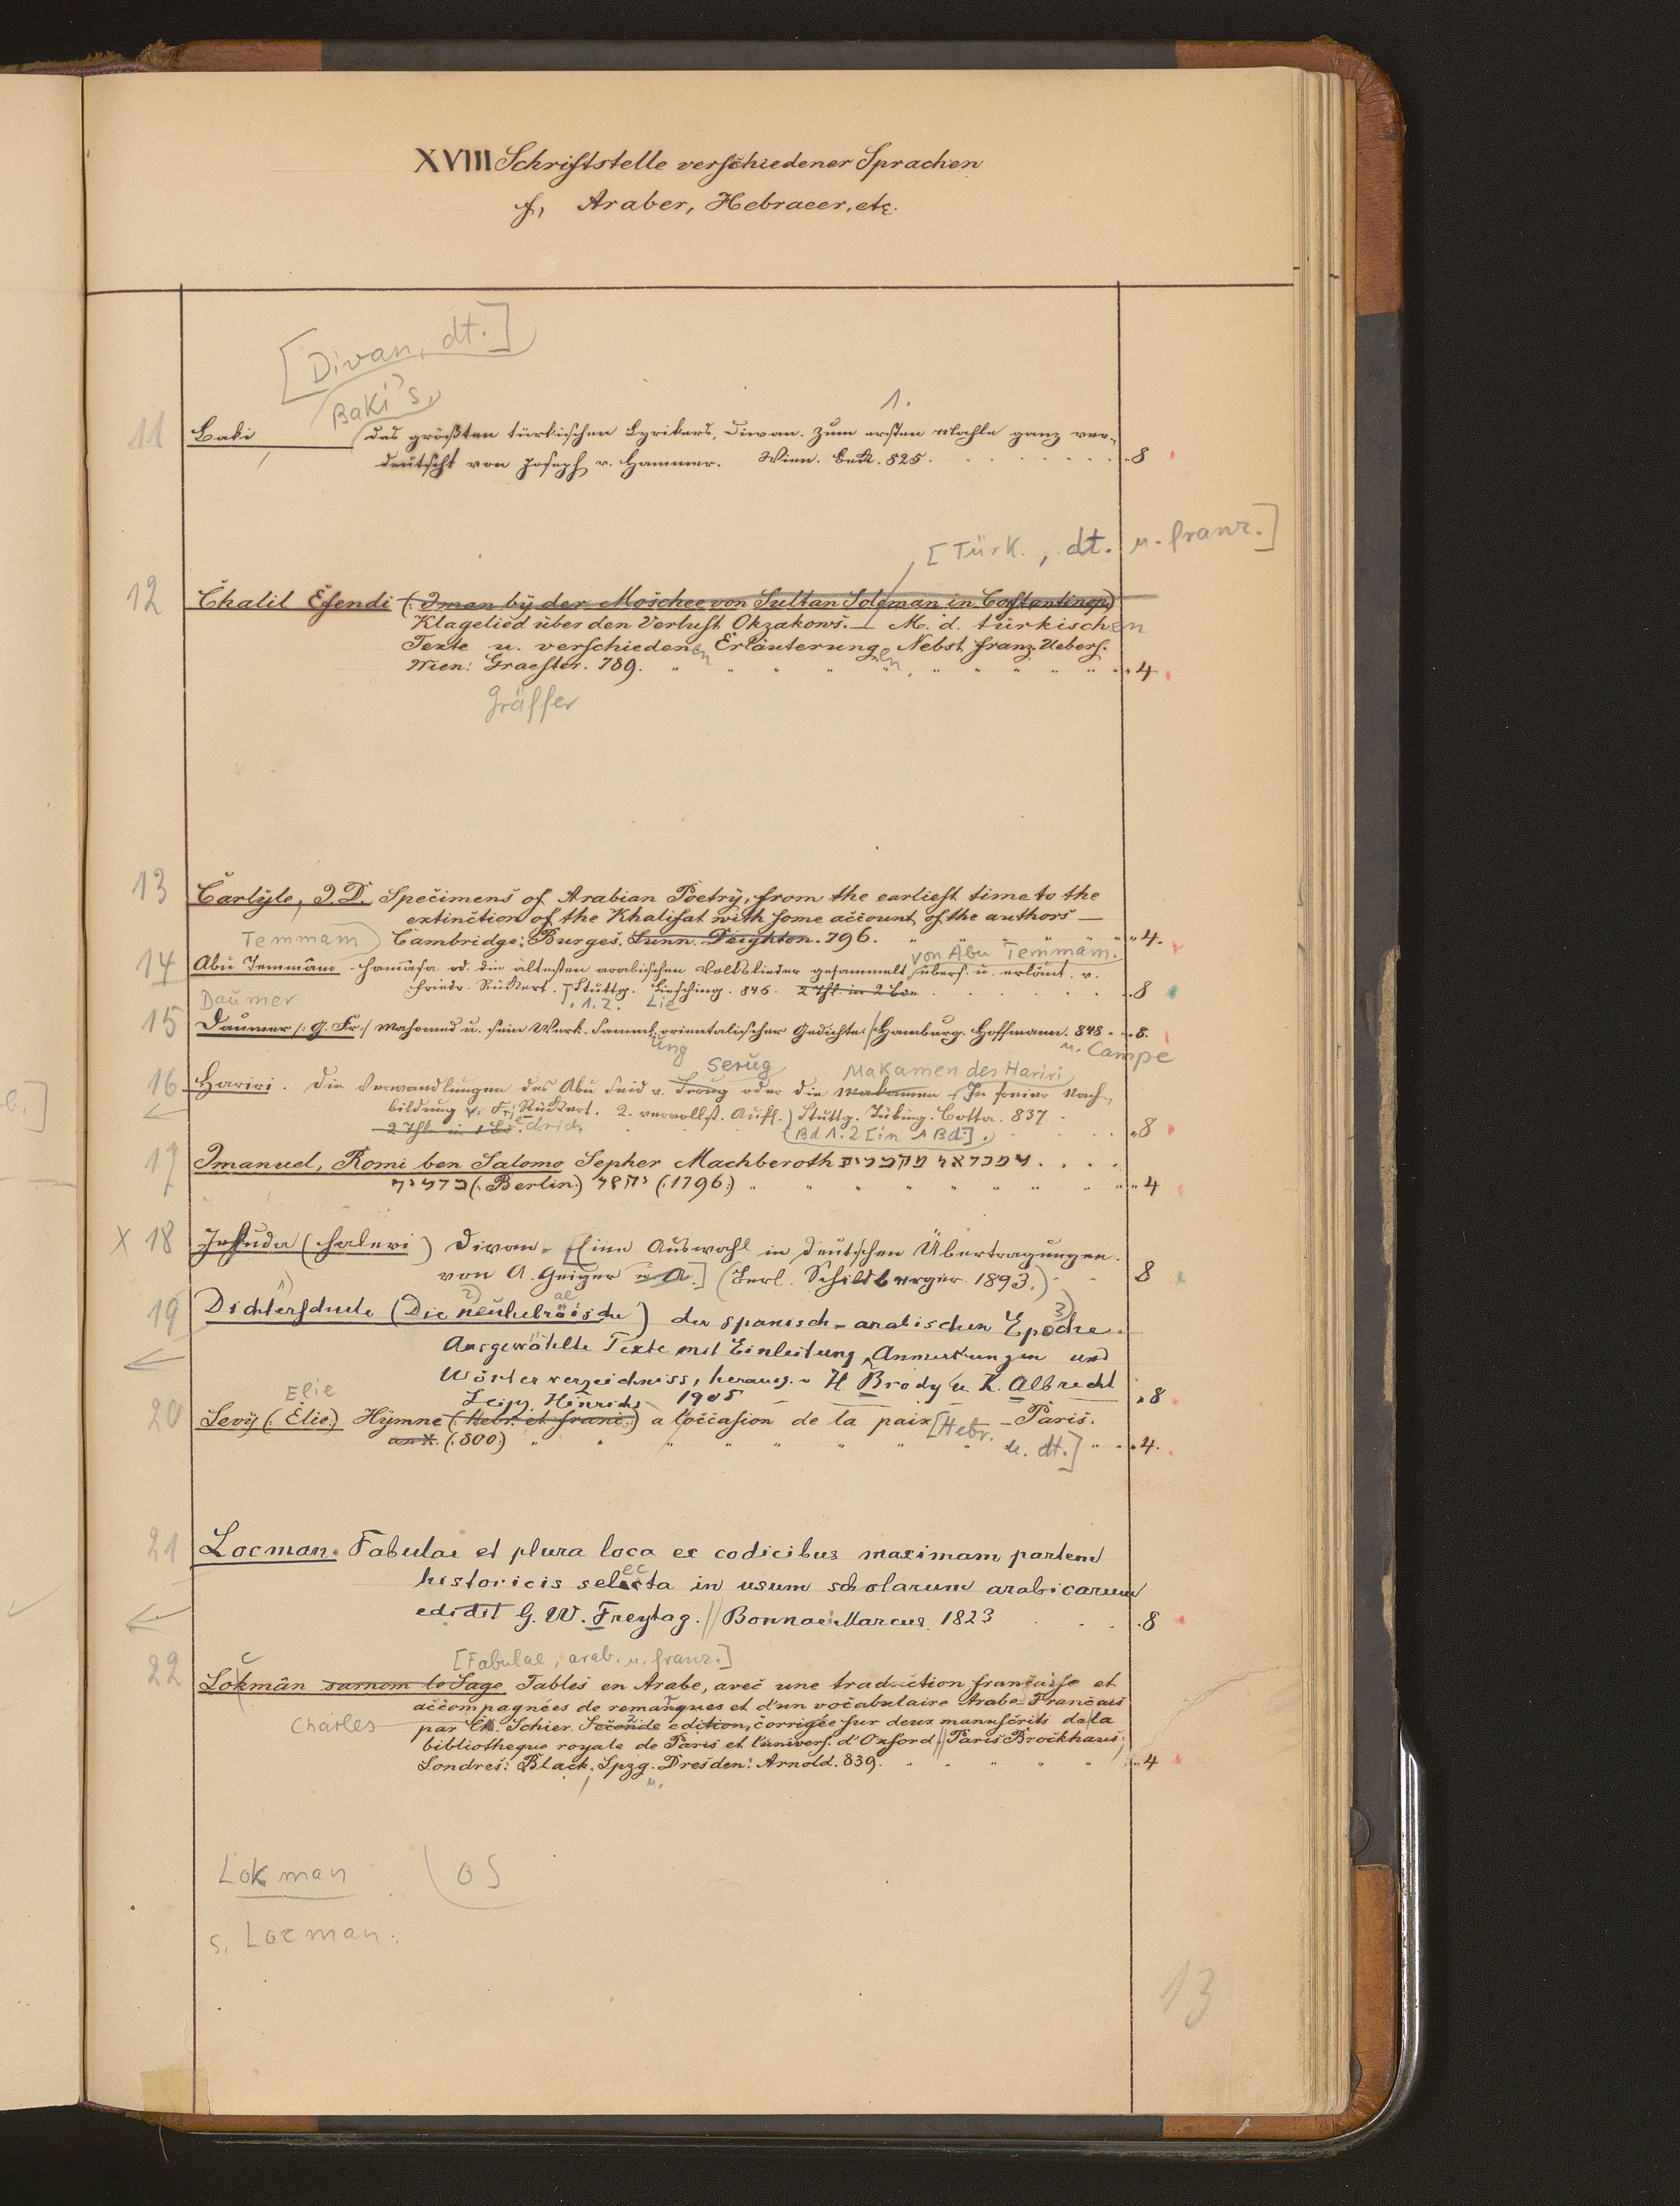 XVIII Schriftstelle verschiedener Sprachen
f, Araber, Hebraeer, etc.
[Divan, dt.]
Baki's,
1.
11 Baki des größten türkischen Lyrikers, Diwan. Zum ersten Mahle ganz ver-
deutscht von Joseph v. Hammer. Wien. Beck. 825. 8
[Türk., dt. u. franz.]
12 Chalil Efendi (: Iman bÿ der Moschee von Sultan Soleman in Constantinop:)
Klagelied über den Verlust Okzakows. — M. d. türkischen
Texte u. verschiedenen Erläuterungen. Nebst franz. Uebers.
Wien: Graeffer. 789. 4
Gräffer
13 Carlÿle, J. D. Specimens of Arabian Poetrÿ, from the earliest time to the
extinction of the Khalifat with some account of the authors —
Temmam Cambridge: Burges. Lunn. Deighton. 796. 4.
von Abu Temmâm.
14 Abu Temmâm Hamâsa od. die ältesten arabischen Volkslieder gesammelt übers. u. erläut. v.
Friedr. Rückert. Stuttg. Liesching. 846. 2 Thl. in 2 Bde 8
Daumer . 1. 2. Lie
15 Daumer /: G. Fr. :/ Mahomed u. sein Werk. Samml. orientalischer Gedichte. Hamburg. Hoffmann. 848. 8.
ung u. Campe
Serug Makamen des Hariri
16 Hariri. Die Verwandlungen des Abu Seid v. Serug oder die Makamen In freier Nach-
bildung v. Fr. Rückert. 2. vervollst. Aufl. Stuttg. Tübing. Cotta. 837
2 Thle in 1 Bd. edrich (Bd 1. 2 [in 1 Bd.]. 8
17 Imanuel, Romi ben Salomo Sepher Machberoth
(: Berlin.) (: 1796:) 4
X 18 Jehuda (Halevi) Divan. [Eine Auswahl in deutschen Übertragungen.
von A. Geiger u A.] (Berl. Schildberger 1893.) 8
1) 2) ae 3)
19 Dichterschule (Die neuhebräische) der spanisch-arabischen Epoche.
Ausgewählte Texte mit Einleitung, Anmerkungen und
Wörterverzeichniss, herausg. v H. Brody u. K. Albrecht
Elie Leipz. Hinrichs 1905 8
20 Levÿ (: Élie:) Hÿmne (: hebr. et franc:) a l'occasion de la paix [Hebr. — Paris.
an X. (: 800:) u. dt.] 4.
21 Locman. Fabulae et plura loca ex codicibus maximam partem
historicis selecta in usum scholarum arabicarum
edidit G. W. Freytag. // Bonnae: Marcus. 1823 8
[Fabulae, arab. u. franz.]
22 Lokmân surnom le Sage Fables en Arabe, avec une traduction française et
accompagnées de remarques et d'un vocabulaire Arabe-Francais
Charles par Ch. Schier. Seconde edition, corrigée sur deux manuscrits de la
bibliotheque royale de Paris et l'univers. d'Oxford. // Paris Brockhaus;
Londres: Black. Lpzg. Dresden: Arnold. 839. 4
u.
Lokman (OS
s. Locman.
13